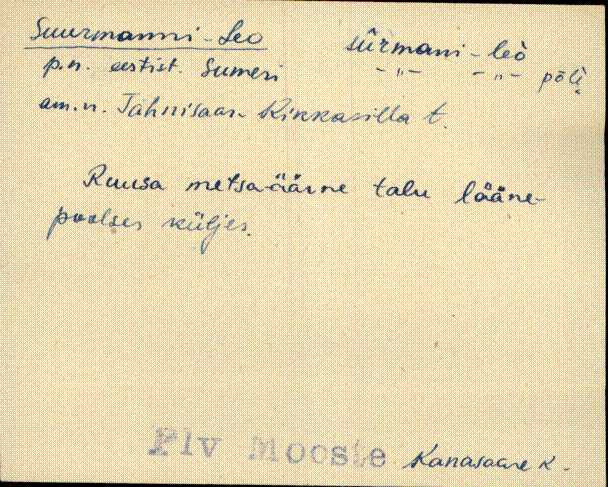 Suurmanni-Leo sūrmani-leò
p.n. eestist. Sumeri -„- -„- põli̬
am.n. Jahnisaare Kikkasilla t.
Ruusa metsa-äärne talu lääne-
poolses küljes.
Plv Mooste Kanasaare k.